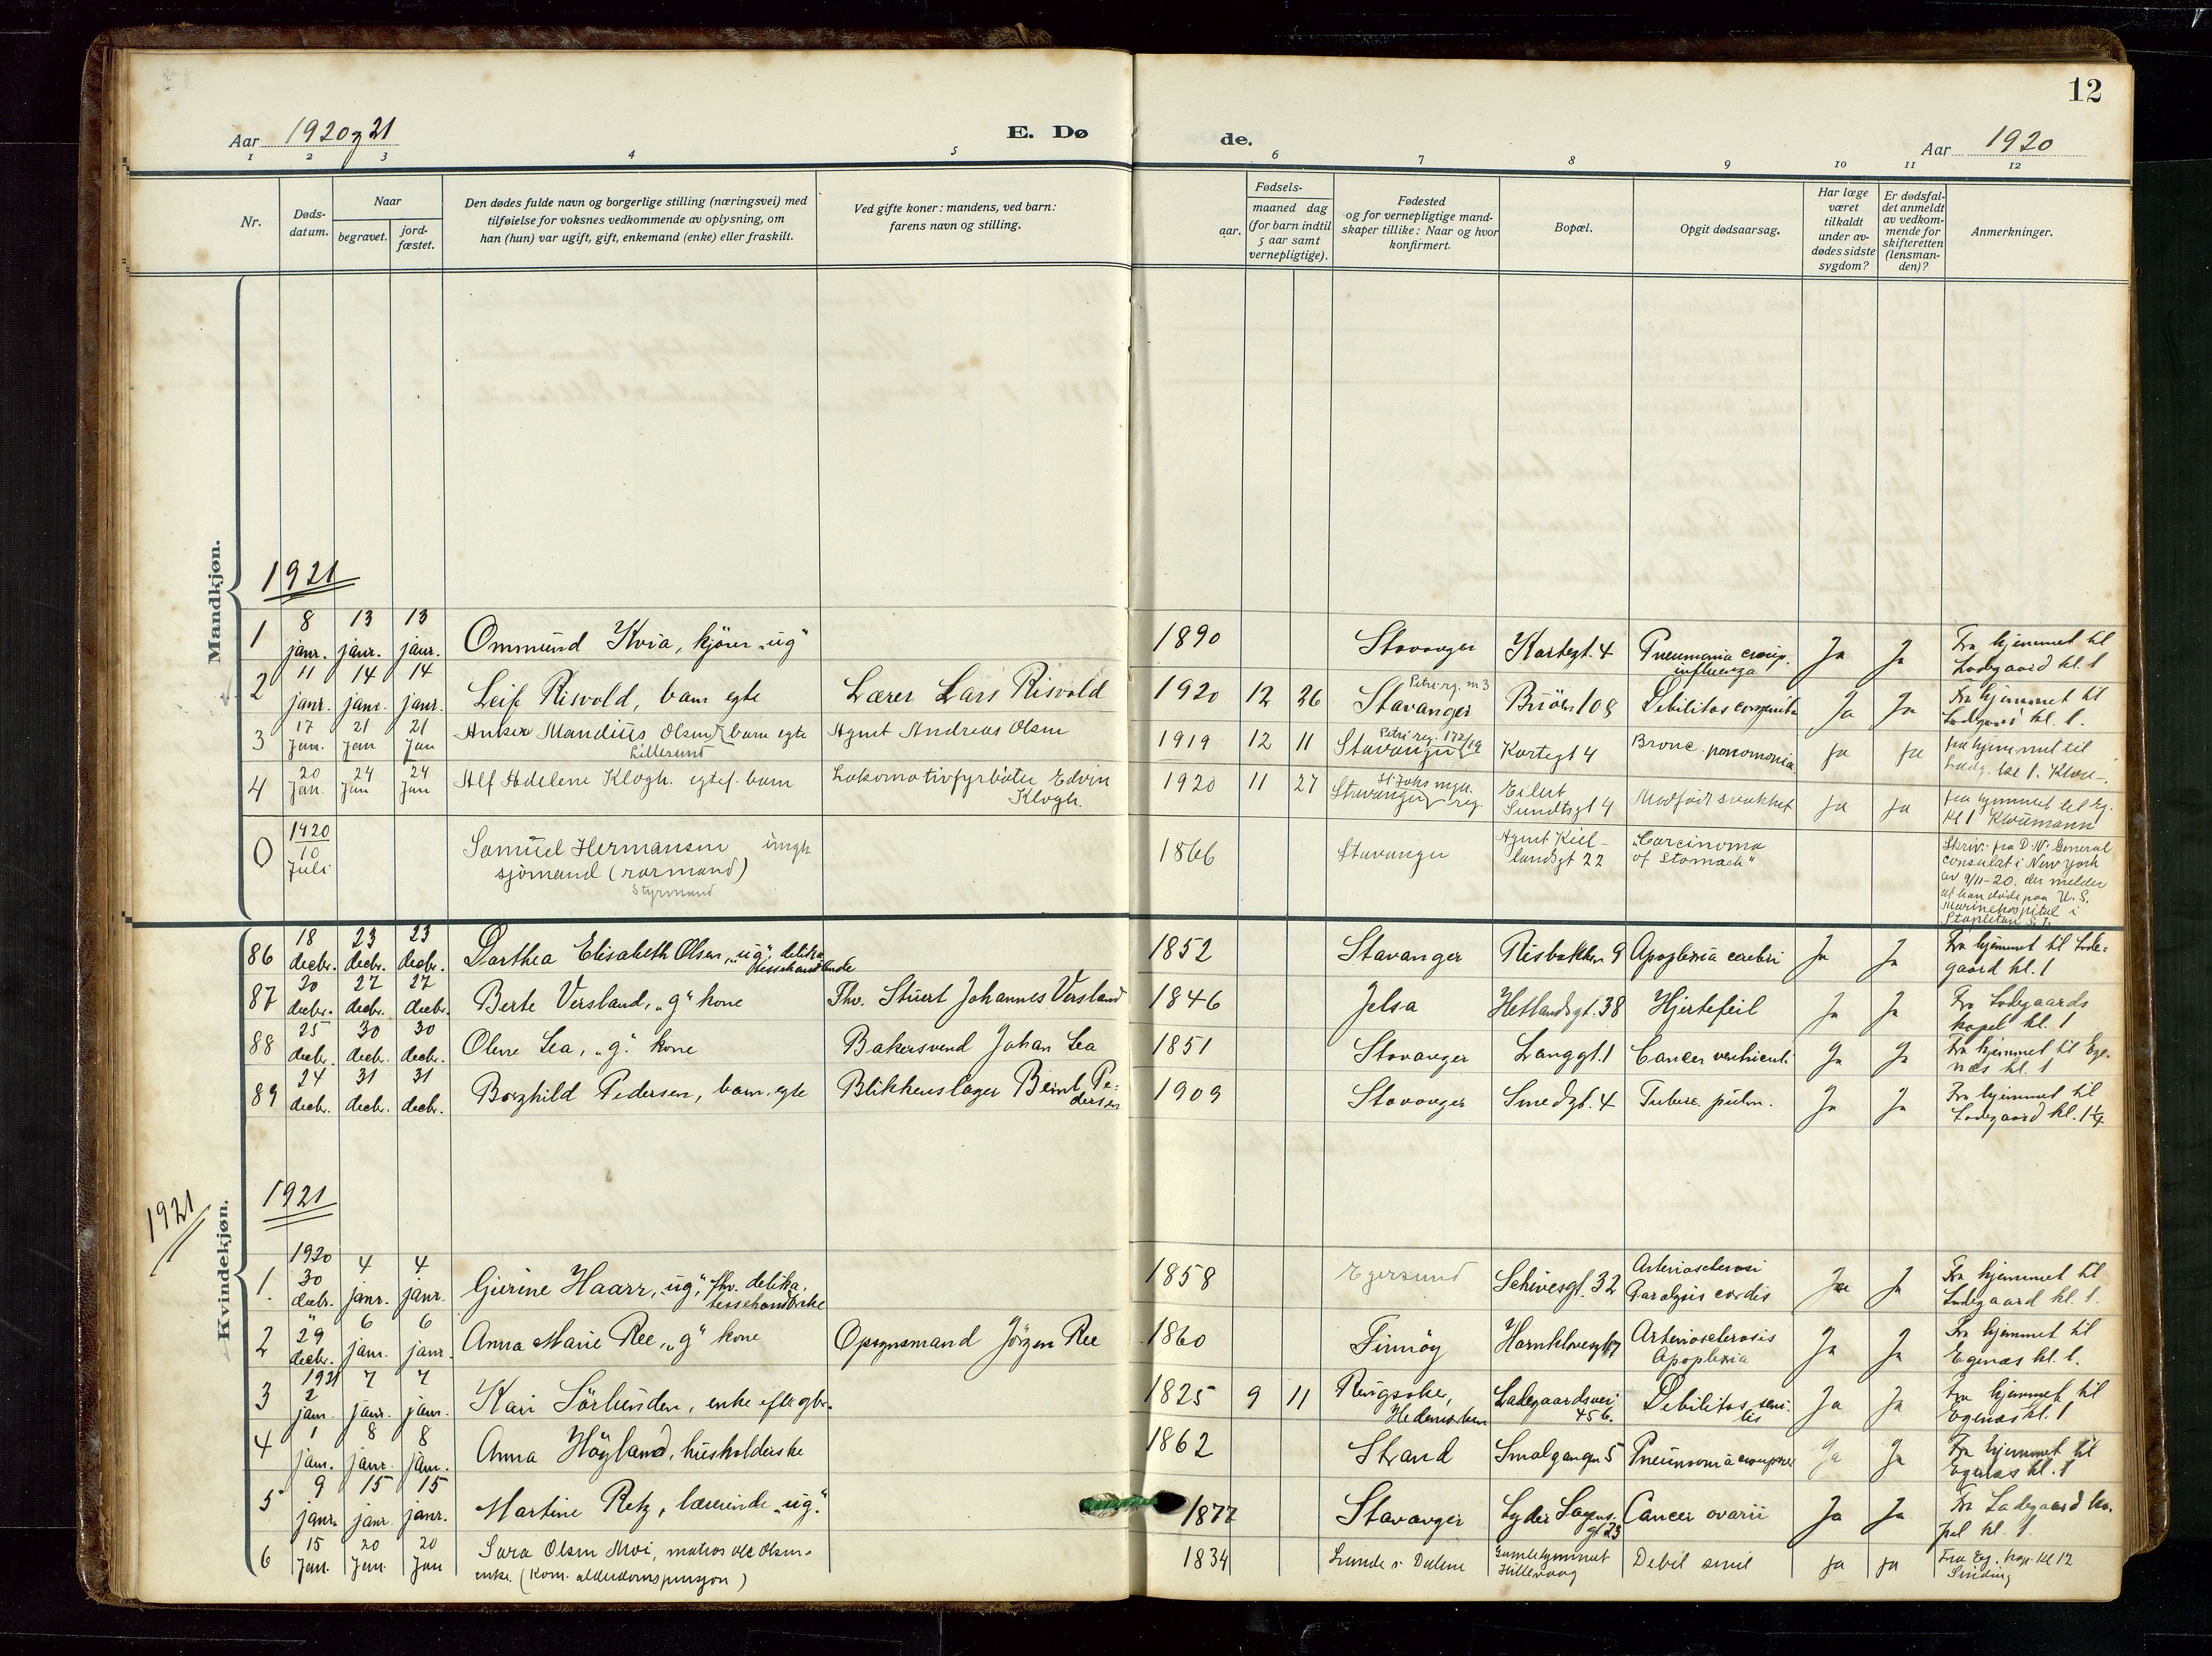 12
Aar 1920 & 21
E. Dø
de.
Aar 1920
1 2 3 4 5 6 7 8 9 10 11 12
Nr.
Døds-
datum.
Naar
begravet.
jord-
fæstet.
Den dødes fulde navn og borgerlige stilling (næringsvei) med
tilføielse for voksnes vedkommende av oplysning, om
han (hun) var ugift, gift, enkemand (enke) eller fraskilt.
Ved gifte koner: mandens, ved barn:
farens navn og stilling.
Fødsels-
aar.
maaned dag
(for barn indtil
5 aar samt
vernepligtige).
Fødested
og for vernepligtige mand-
skaper tillike: Naar og hvor
konfirmert.
Bopæl.
Opgit dødsaarsag.
Har læge
været
tilkaldt
under av-
dødes sidste
sygdom?
Er dødsfal-
det anmeldt
av vedkom-
mende for
skifteretten
(lensman-
den)?
Anmerkninger.
Mandkjøn.
1921
1 8 janr. 13 janr. 13 janr. Ommund Kvia, kjører „ug" 1890 Stavanger Kortegt. 4 Pneumonia croup. influenza Ja Ja Fra hjemmet til
Ladegaard kl. 1
2 11 janr. 14 janr. 14 janr. Leif Risvold, barn egte Lærer Lars Risvold 1920 12 26 Petri rg. nr 3 Stavanger Debilitas congenita Ja Ja Fra hjemmet til
Ladegaard kl. 1.
3 17 Jan. 21 Jan 21 Jan Mandius Olsen barn egte Agent Andreas Olsen 1919 12 11 Petri reg. 172/19 Stavanger Kortegt 4 Bronc. ja ja fra hjemmet til
Ladg. kl 1.
Lillesund
4 20 Jan. 24 Jan 24 Jan Alf Adelene Klogh. egtef. barn Lokomotivfyrbøter Edvin
Klogh. 1920 11 27 St Johs mgh. Stavanger reg. Eilert
Sundtsgt 4 Medfødt svakhet ja ja fra hjemmet til Eg.
kl 1
0 1920 10 Juli Samuel Hermansen ungk
sjømand (rormand)
Styrmand 1866 Stavanger Agent Kiel-
landsgt 22 „Carcinoma
of Stomach" Skriv. fra D. N. General
consulat i New York
av 9/11-20. der melder
at han døde paa U. S.
Marinehospital i
Stapleton S. I.
Kvindekjøn.
86 18 decbr. 23 decbr. 23 decbr. Dorthea Elisabeth Olsen, „ug", delika
tessehandlende 1852 Stavanger Risbakken 9 Apoplexia cerebri Ja Ja Fra hjemmet til Lade-
gaard kl. 1
87 20 decbr. 27 decbr. 27 decbr. Berte Versland, „g" kone Fhv. Stuert Johannes Versland 1846 Jelsa Hetlandsgt. 38 Hjertefeil Ja Ja Fra Ladegaards
kapel kl. 1
88 25 decbr. 30 decbr. 30 decbr. Olene Lea, „g." kone Bakersvend Johan Lea 1851 Stavanger Langgt. 1 Cancer ventriculi Ja Ja Fra hjemmet til Ege-
næs kl. 1
89 24 decbr. 31 decbr. 31 decbr. Borghild Pedersen, barn, egte Blikkenslager Bernt Pe-
dersen 1909 Stavanger Smedgt. 4 Tuberc. pulm. Ja Ja Fra hjemmet til
Ladegaard kl. 1 1/4
1921
1921
1. 1920 30 decbr. 4 janr. 4 janr. Gurine Haarr, „ug", fhv. delika-
tessehandlerske 1858 Egersund Schivesgt. 32 Arteriosclerosi
Paralysis cordis Ja Ja Fra hjemmet til
Ladegaard kl. 1.
2 " 29 decbr. 6 janr. 6 janr. Anna Marie Ree, „g" kone Opsynsmand Jörgen Ree 1860 Finnöy Arteriosclerosis
Apoplexia Ja Ja Fra hjemmet til
Egenæs kl. 1.
3 1921 2 jan. 7 janr. 7 janr. Kari Sörlunden, enke efter gbr. 1825 9 11 Ringsaker,
Hedemarken Ladegaardsvei
45 b. Debilitas seni-
lis Ja Ja Fra hjemmet til
Egenæs kl. 1
4 1 jan. 8 janr. 8 janr. Anna Höyland, husholderske 1862 Strand Smalgangen 5 Pneumonia crouposa Ja Ja Fra hjemmet til
Egenæs kl. 1
5 9 janr. 15 janr. 15 janr. Martine Retz, lærerinde „ug." 1877 Stavanger Lyder Sagens-
gt 23 Cancer ovarii Ja Ja Fra Ladegaard ka-
pel kl. 1.
6 15 Jan. 20 Jan. 20 Jan Sara Olsen Moi, matros Ole Olsens
enke. (Kom. alderdomspensjon) 1834 Lunde i Dalene Gamlehjemmet
Hillevaag Debil senil ja ja Fra Eg. kap. kl 12
Sinding